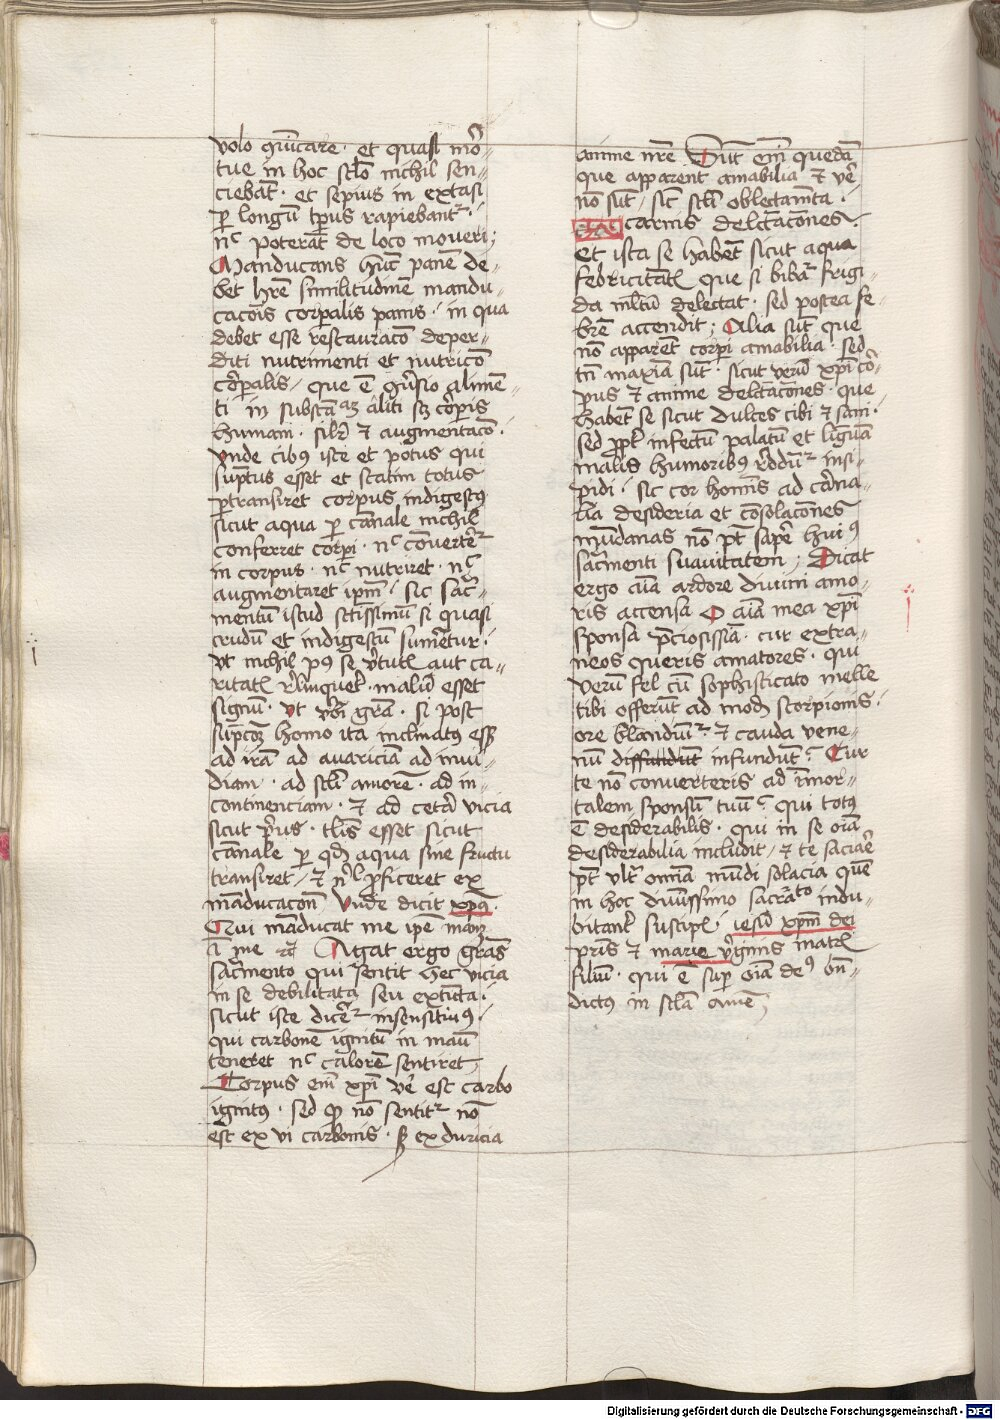 volo gūitare · et quasi mor⸗
tue in hoc sclo nichil sen⸗
ciebāt · et sepius in extasi
p longū tpus rapiebant~ ·
nc poterāt de loco moveri ;
Manducans hūc panē de⸗
bet hrē similitudinē mandu⸗
cacōis corpalis panis · in qua
debet esse restauracō deper⸗
diti nutrimenti et nutricō
corpalis / que ē gūsio alimē⸗
ti in substātiaz aliti sz corpis
humani · silr ⁊ augmentacō ·
vnde cibus iste et potus qui
sūptus esset et statim totus
ptransiret corpus indigestus
sicut aqua p cannale nichil
conferret corpi · nc cōverter~
in corpus · nc nutriret · nc
augmentaret ipm · sic sacra⸗
mentū istud sctissimū si quasi
crudū et indigestū sumetur ·
vt nichil p9 se vtutē aut ca⸗
ritatē relinquet · malū esset
signū · vt vbi gra · si post
supcōez homo ita inclinatus esset
ad irā ad avariciā ad invi⸗
diam · ad scli amorē · ad in⸗
continenciam · ⁊ ad cetera vicia
sicut prius · tlis esset sicut
cannale p qd aqua sine fructu
transiret / ⁊ nl pficeret ex
māducacōn vnde dicit xpus ·
Qui māducat me ipe manz
i me rc Agat ergo grās
sacrmento qui sentit hec vicia
in se debilitata seu extincta ·
sicut iste dicer~ insensitivus ·
qui carbonē ignitū in manu
teneret nc calorē sentiret ;
Corpus em xpi ve est carbo
ignitus · sed qp nō sentitr nō
est ex vi carbonis · sz ex duricia
anime nre Sūt em quedā
que apparent amabilia ⁊ ve
nō sūt / sic scli oblectamēta ·
carnis delectacōnes ·
et ista se habēt sicut aqua
febricitātl que si bibat~ frigi⸗
da mltū delectat · sed postea fe⸗
brē accendit ; Alia sūt que
nō apparent corpi amabilia · sed
tn maxia sūt · sicut verū xpi cor⸗
pus ⁊ anime delectacōnes · que
habēt se sicut dulces cibi ⁊ sani ·
sed ppt infectū palatū et linguā
malis humoribus reddūt~ insi⸗
pidi · sic cor homīs ad carna⸗
lia desideria et cōsolacōnes
mūdanas nō pt sapē huius
sacrmenti suavitatem ; Dicat
ergo aīa ardore divini amo⸗
ris accensa O aīa mea xpi
sponsa pciosissīa · cur extra⸗
neos queris amatores · qui
verū fel cū sophisticato melle
tibi offerūt ad modū scorpionis ·
ore blandiūt~ ⁊ cauda vene⸗
nū diffundūt infundūt · Cur
te nō converteris ad īmor⸗
talem sponsū tuū · qui totus
ē desiderabilis · qui in se oīa
desiderabilia includit / ⁊ te saciare
pt vlt omīa mūdi solacia quē
in hoc divissimo sacrato indu⸗
bitantr suscipe · iesū xpm dei
pris ⁊ marie vginis matrl
filiū · qui ē sup oīa deus bn⸗
dictus in scla amē ;
Digitalisierung gefördert durch die Deutsche Forschungsgemeinschaft - DFG